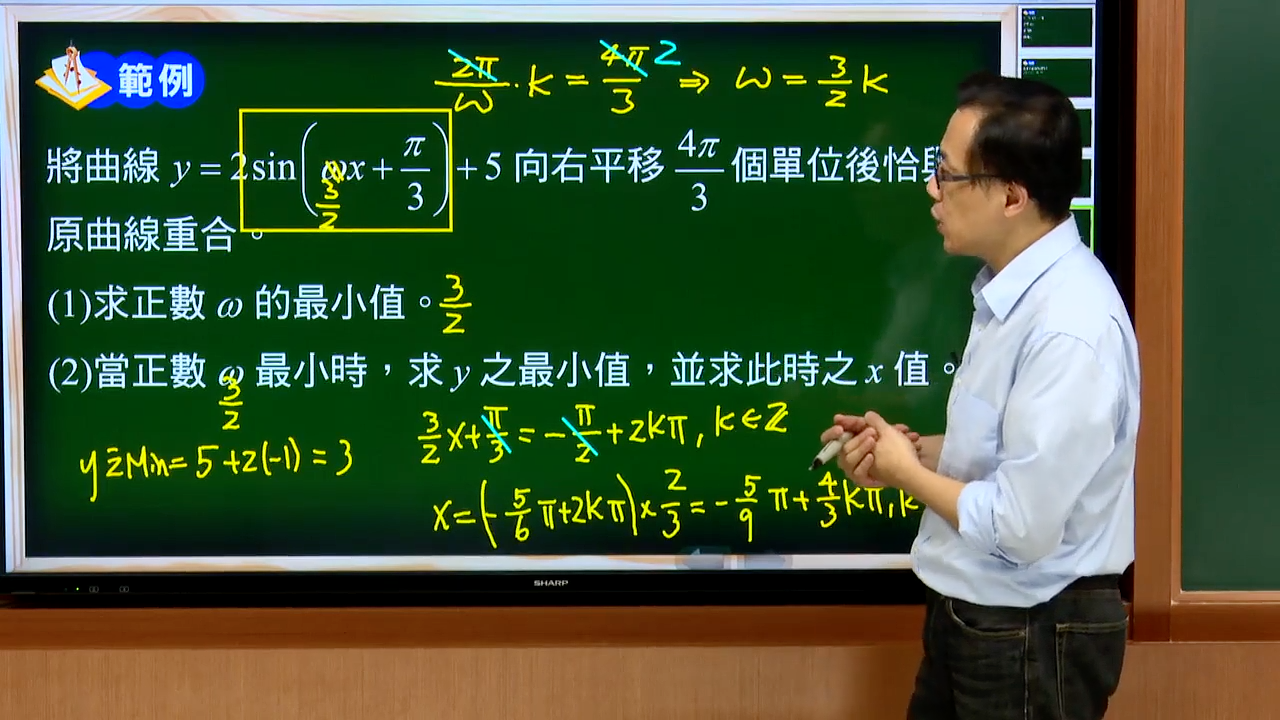 範例
2π/ω · k = 4π/3 2 ⇒ ω = 3/2 k
將曲線 y = 2sin(ωx + π/3) + 5 向右平移 4π/3 個單位後恰
3/2
原曲線重合。
(1)求正數 ω 的最小值。 3/2
(2)當正數 ω 最小時，求 y 之最小值，並求此時之 x 值。
3/2
3/2 x + π/3 = -π/2 + 2kπ, k ∈ Z
y之Min = 5 + 2(-1) = 3
x = (-5/6 π + 2kπ) × 2/3 = -5/9 π + 4/3 kπ, k
SHARP